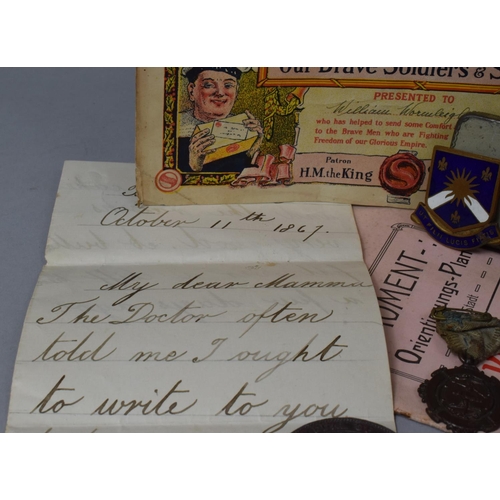 our Brave Soldiers & S
PRESENTED TO
William
who has helped to send some Comfort
to the Brave Men who are Fighting
Freedom of our Glorious Empire.
Patron
H.M. the King
October 11th 1867.
My dear Mamma
The Doctor often
told me I ought
to write to you
MOMENT-
Orientierungs-Plan
Stadt